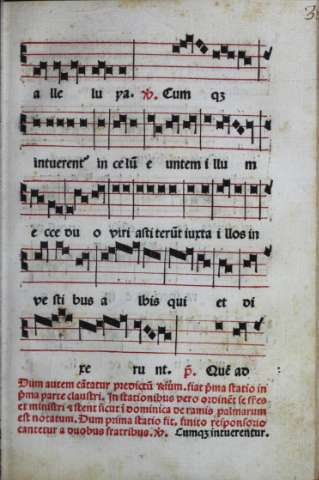 3
a lle lu ya. ℣. Cum qʒ
intuerent᷒ in celū e untem i llu m
e cce du o viri astiterūt iuxta i llos in
ve sti bus a lbis qui et di
xe ru nt. ℟. Quē ad
Dum autem cātatur predictū ℟sum. fiat pma statio in
pma parte claustri. In stationibus vero ordinēt se frēs
et ministri ⁊ stent sicut i dominica de ramis palmarum
est notatum. Dum prima statio fit. finito responsorio
cantetur a duobus fratribus. ℣. Cumqʒ intuerentur.